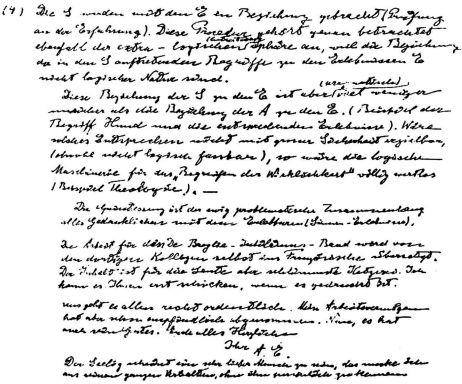 (4) Die S werden mit den E in Beziehung gebracht (Prüfung
an der Erfahrung). Diese Prozedur gehört genau betrachtet
ebenfalls der extra-logischen (intuitiven) Sphäre an, weil die Beziehung
der in den S auftretenden Begriffe zu den Erlebnissen E
nicht logischer Natur sind.
Diese Beziehung der S zu den E ist aber viel weniger
unsicher als die Beziehung der A zu den E. (Beispiel der
Begriff Hund und die entsprechenden Erlebnisse). Wäre
solches Entsprechen nicht mit grosser Sicherheit erzielbar,
(obwohl nicht logisch fassbar), so wäre die logische
Maschinerie für das „Begreifen der Wirklichkeit" völlig wertlos
(Beispiel Theologie). —
Die Quintessenz ist der ewig problematische Zusammenhang
alles Gedanklichen mit dem Erlebbaren (Sinnes-Erlebnisse).
Die Arbeit für den De Broglie-Jubiläums-Band wird von
den dortigen Kollegen selbst ins Französische übersetzt.
Der Inhalt ist für die Leute aber schlimmste Ketzerei. Ich
kann es Ihnen erst schicken, wenn es gedruckt ist.
geht es alles recht ordentlich. Mein Arbeitsvermögen
hat aber schon empfindlich abgenommen. Nun, es hat
auch sein Gutes. Herzliche
Ihr A. E.
Der Seelig scheint ein sehr lieber Mensch zu sein, das merkt
aus seinem ganzen Verhalten, ohne ihn persönlich zu kennen